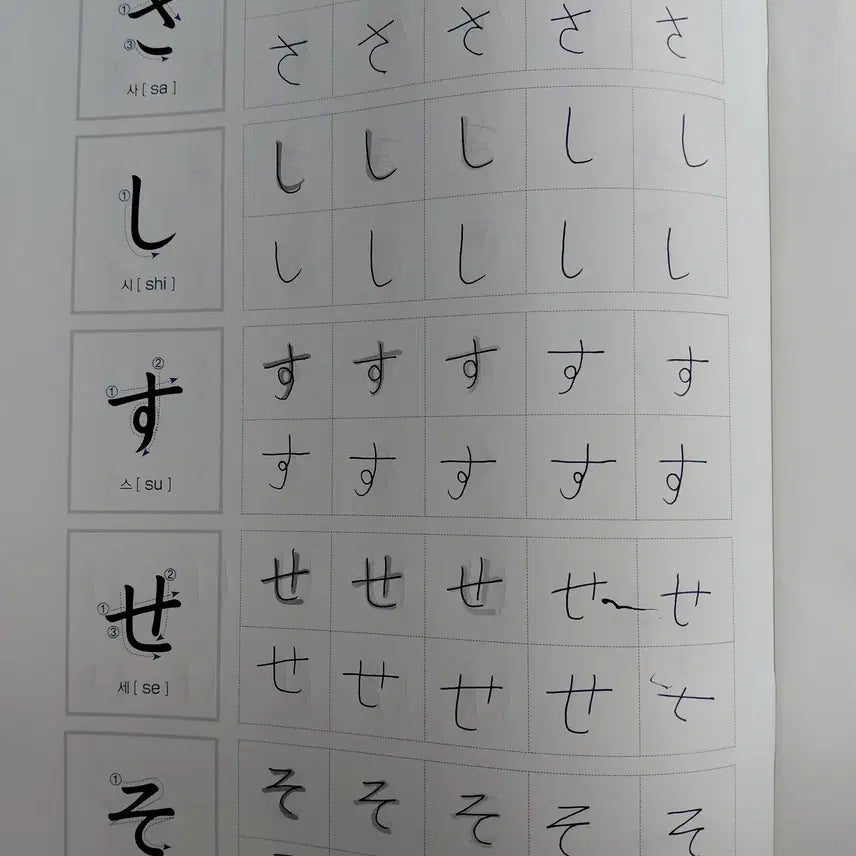 ① ③ さ
사 [ sa ]
さ さ さ さ さ
① し
시 [ shi ]
し し し し し
し し し し し
① ② す
스 [ su ]
す す す す す
す す す す す
① ② ③ せ
세 [ se ]
せ せ せ せ せ
せ せ せ せ
① そ
そ そ そ そ そ